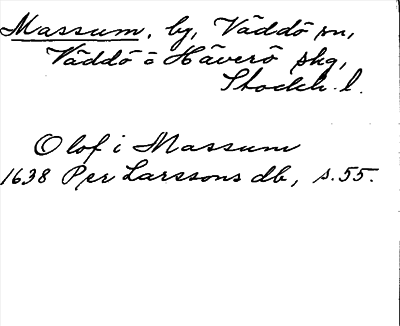 Massum, by, Väddö sn,
Väddö o Häverö skg,
Stockh. l.
Olof i Massum
1638 Per Larssons db, s. 55.